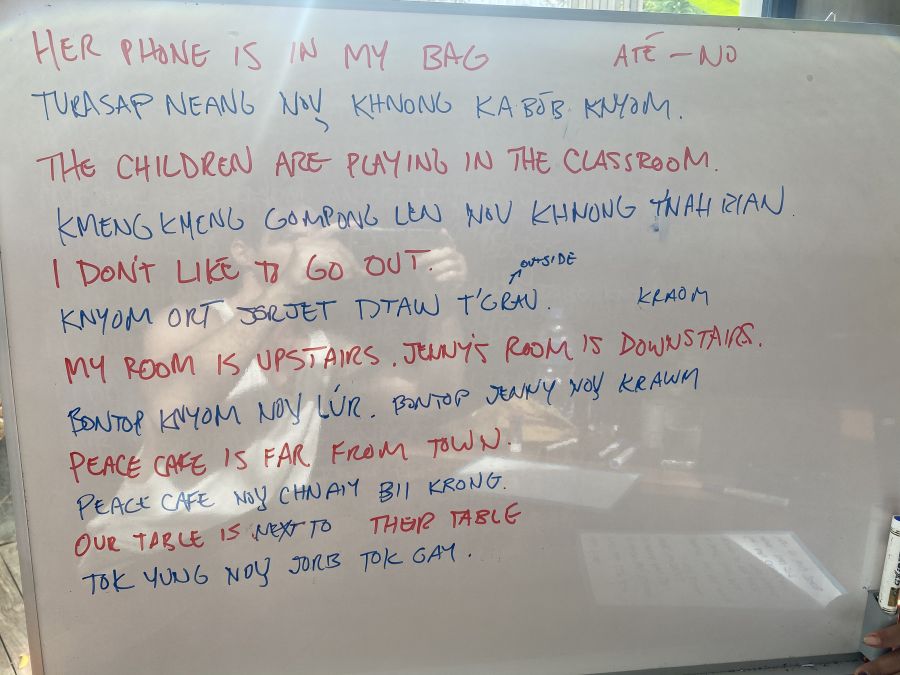 HER PHONE IS IN MY BAG ATÉ - NO
TURASAP NEANG NOV KHNONG KABŌB KNYOM.
THE CHILDREN ARE PLAYING IN THE CLASSROOM.
KMENG KMENG GOMPONG LEN NOV KHNONG T'NAH RIAN.
I DON'T LIKE TO GO OUT. OUTSIDE
KNYOM ORT JORJET DTAW T'GRAV. KRAOM
MY ROOM IS UPSTAIRS. JENNY'S ROOM IS DOWNSTAIRS.
BONTOP KNYOM NOV LÚR. BONTOP JENNY NOV KRAWM
PEACE CAFE IS FAR FROM TOWN.
PEACE CAFE NOV CHNAIY BII KRONG.
OUR TABLE IS NEXT TO THEIR TABLE
TOK YUNG NOV JORB TOK GAY.